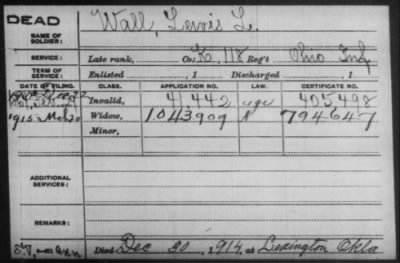 DEAD
NAME OF SOLDIER: Wall, Lewis L.
SERVICE: Late rank, Co. K, 118 Reg't Ohio Inf.
TERM OF SERVICE: Enlisted , 1 Discharged , 1
DATE OF FILING. CLASS. APPLICATION NO. LAW. CERTIFICATE NO.
Invalid, 41,442 405498
1915 Mch 20 Widow, 1043909 794647
Minor,
ADDITIONAL SERVICES:
REMARKS:
Died Dec 20, 1914, at Lexington Okla